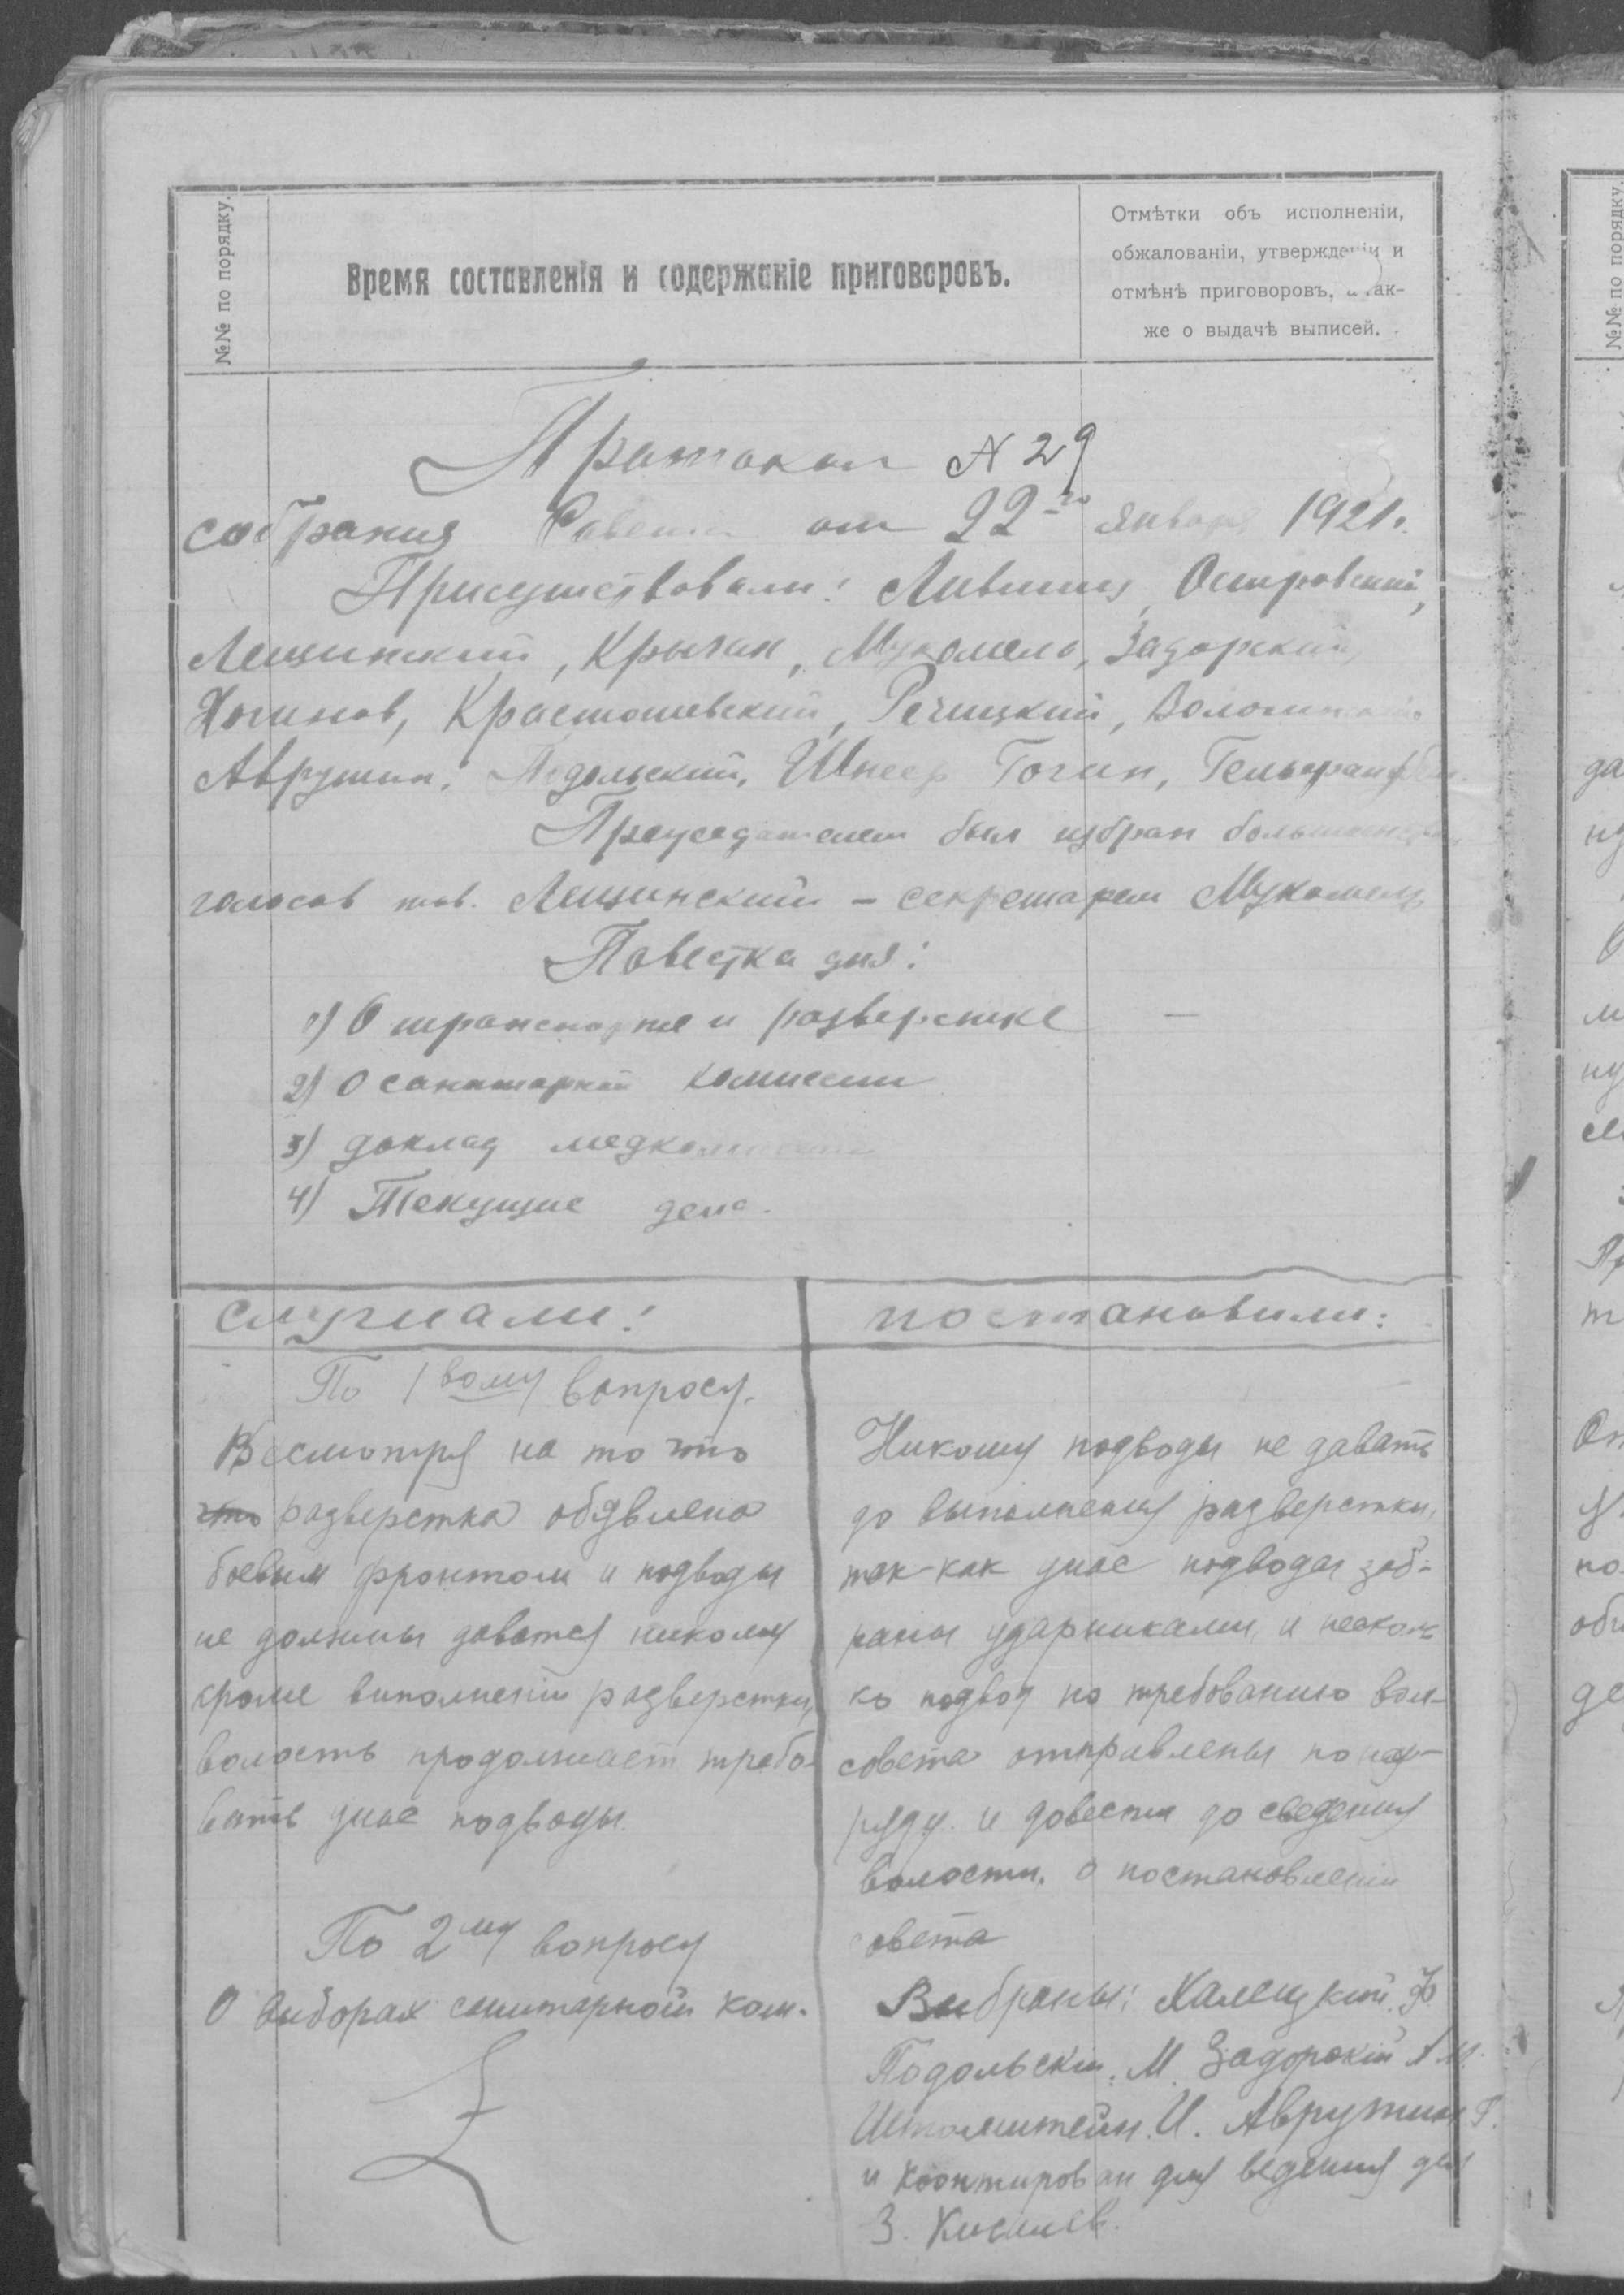 №№ по порядку.
Время составленія и содержаніе приговоровъ.
Отмѣтки объ исполненіи,
обжалованіи, утвержденіи и
отмѣнѣ приговоровъ, а так-
же о выдачѣ выписей.
Протокол N 29
собрания Совета от 22-го января 1921г.
Присутствовали: Лившиц, Островский,
Лещинский, Крычан, Мукомель, Задорский,
Хогинов, Красташевский, Речицкий,
Аврутин, Подольский, Шнеер Гогин,
Председателем был избран большинством
голосов тов. Лещинский – секретарем Мукомель
Повестка дня:
1) О транспорте и разверстке —
2) О санитарной комиссии
3) доклад медкомиссии
4) Текущие дела.
слушали:
По 1вому вопросу.
Несмотря на то что
что разверстка объявлена
боевым фронтом и подводы
не должны даватся никому
кроме виполнении разверстки,
волость продолжает требо-
вать унас подводы.
По 2му вопросу
О выборах санитарной ком.
постановили:
Никому подводы не давать
до выполнения разверстки,
так-как унас подводы заб-
раны ударниками, и несколь
ко подвод по требованию вол-
совета отправлены по нар-
ряду. и довести до сведения
волости. о постановлении
совета
Выбраны: Халецкий. Ф
Подольский. М. Задорский А.М.
И. Аврутин Г.
и кооптирован для ведения дел
З. Киселев.
№№ по порядку.